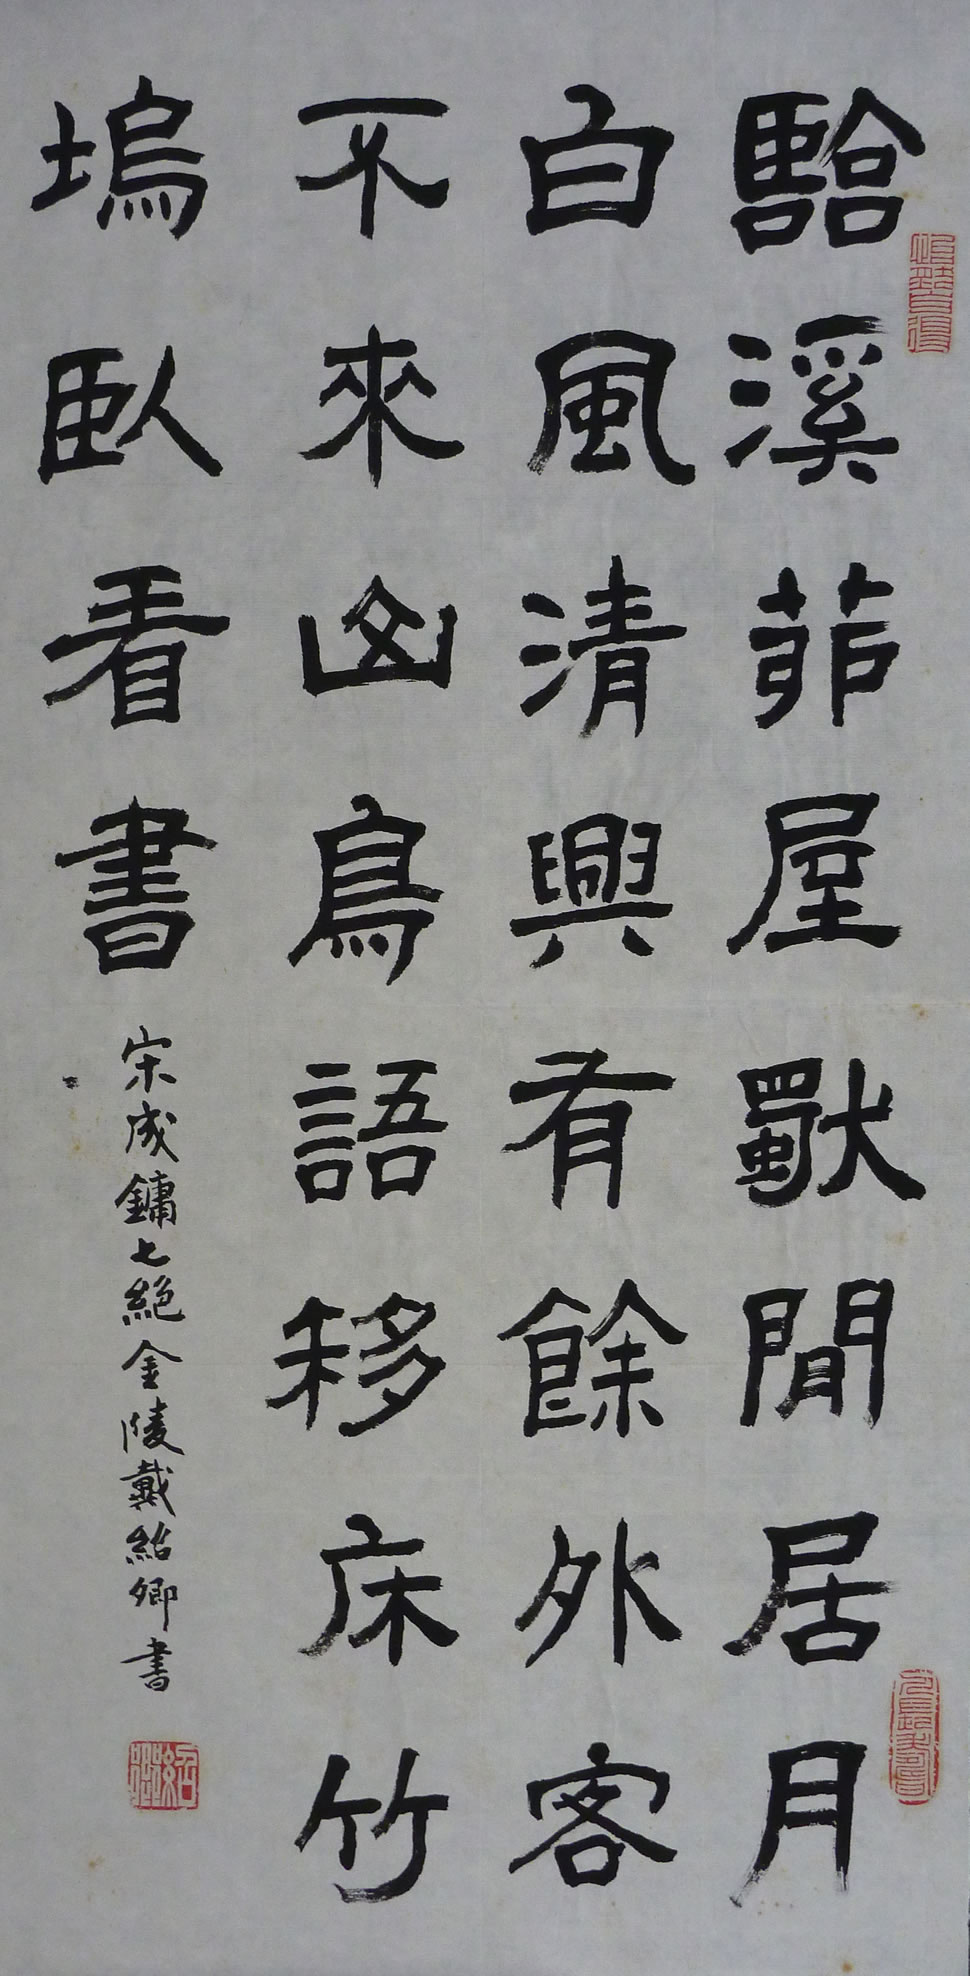 臨溪茆屋獨閒居月
白風清興有餘外客
不來山鳥語移床竹
塢臥看書
宋成鏞七絕金陵戴紹卿書
紹卿